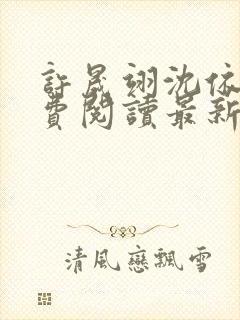 許晟翊沈依
費閱讀最新
清風戀飄雪